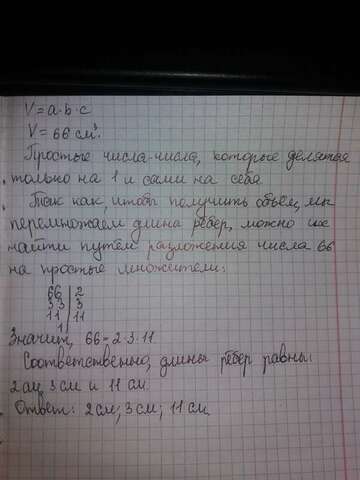 V = a·b·c
V = 66 см³.
Простые числа-числа, которые делятся
только на 1 и сами на себя
Так как, чтобы получить объём, мы
перемножаем длина рёбер, можно их
найти путём разложения числа 66
на простые множители:
66 | 2
33 | 3
11 | 11
1 |
Значит, 66=2·3·11
Соответственно, длины рёбер равны:
2см, 3см и 11 см.
Ответ: 2см; 3см; 11см